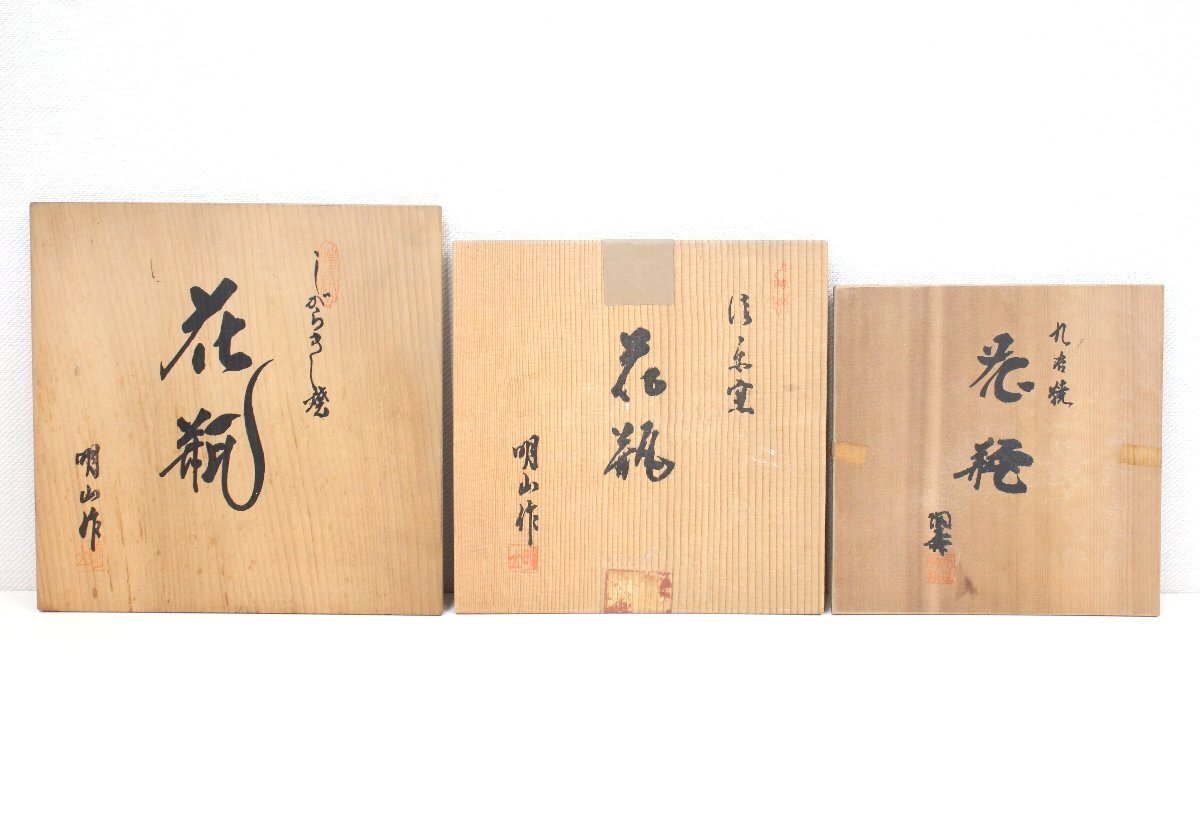 しがらき焼
花瓶
明山作
信楽窯
花瓶
明山作
九谷焼
花瓶